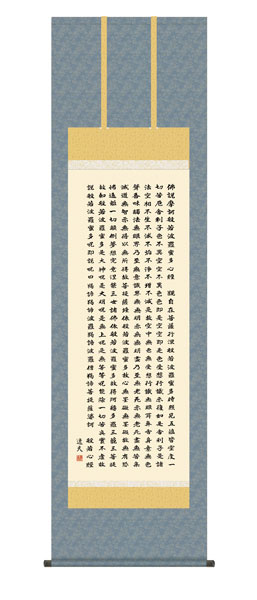 佛説摩訶般若波羅蜜多心經 觀自在菩薩行深般若波羅蜜多時照見五蘊皆空度一
切苦厄舎利子色不異空空不異色色即是空空即是色受想行識亦復如是舎利子是諸
法空相不生不滅不垢不浄不増不減是故空中無色無受想行識無眼耳鼻舌身意無色
聲香味觸法無眼界乃至無意識界無無明亦無無明盡乃至無老死亦無老死盡無苦集
滅道無智亦無得以無所得故菩提薩埵依般若波羅蜜多故心無罣礙無罣礙故無有恐
怖遠離一切顛倒夢想究竟涅槃三世諸佛依般若波羅蜜多故得阿耨多羅三藐三菩提
故知般若波羅蜜多是大神呪是大明呪是無上呪是無等等呪能除一切苦真實不虚故
説般若波羅蜜多呪即説呪曰羯諦羯諦波羅羯諦波羅僧羯諦菩提薩婆訶 般若心經